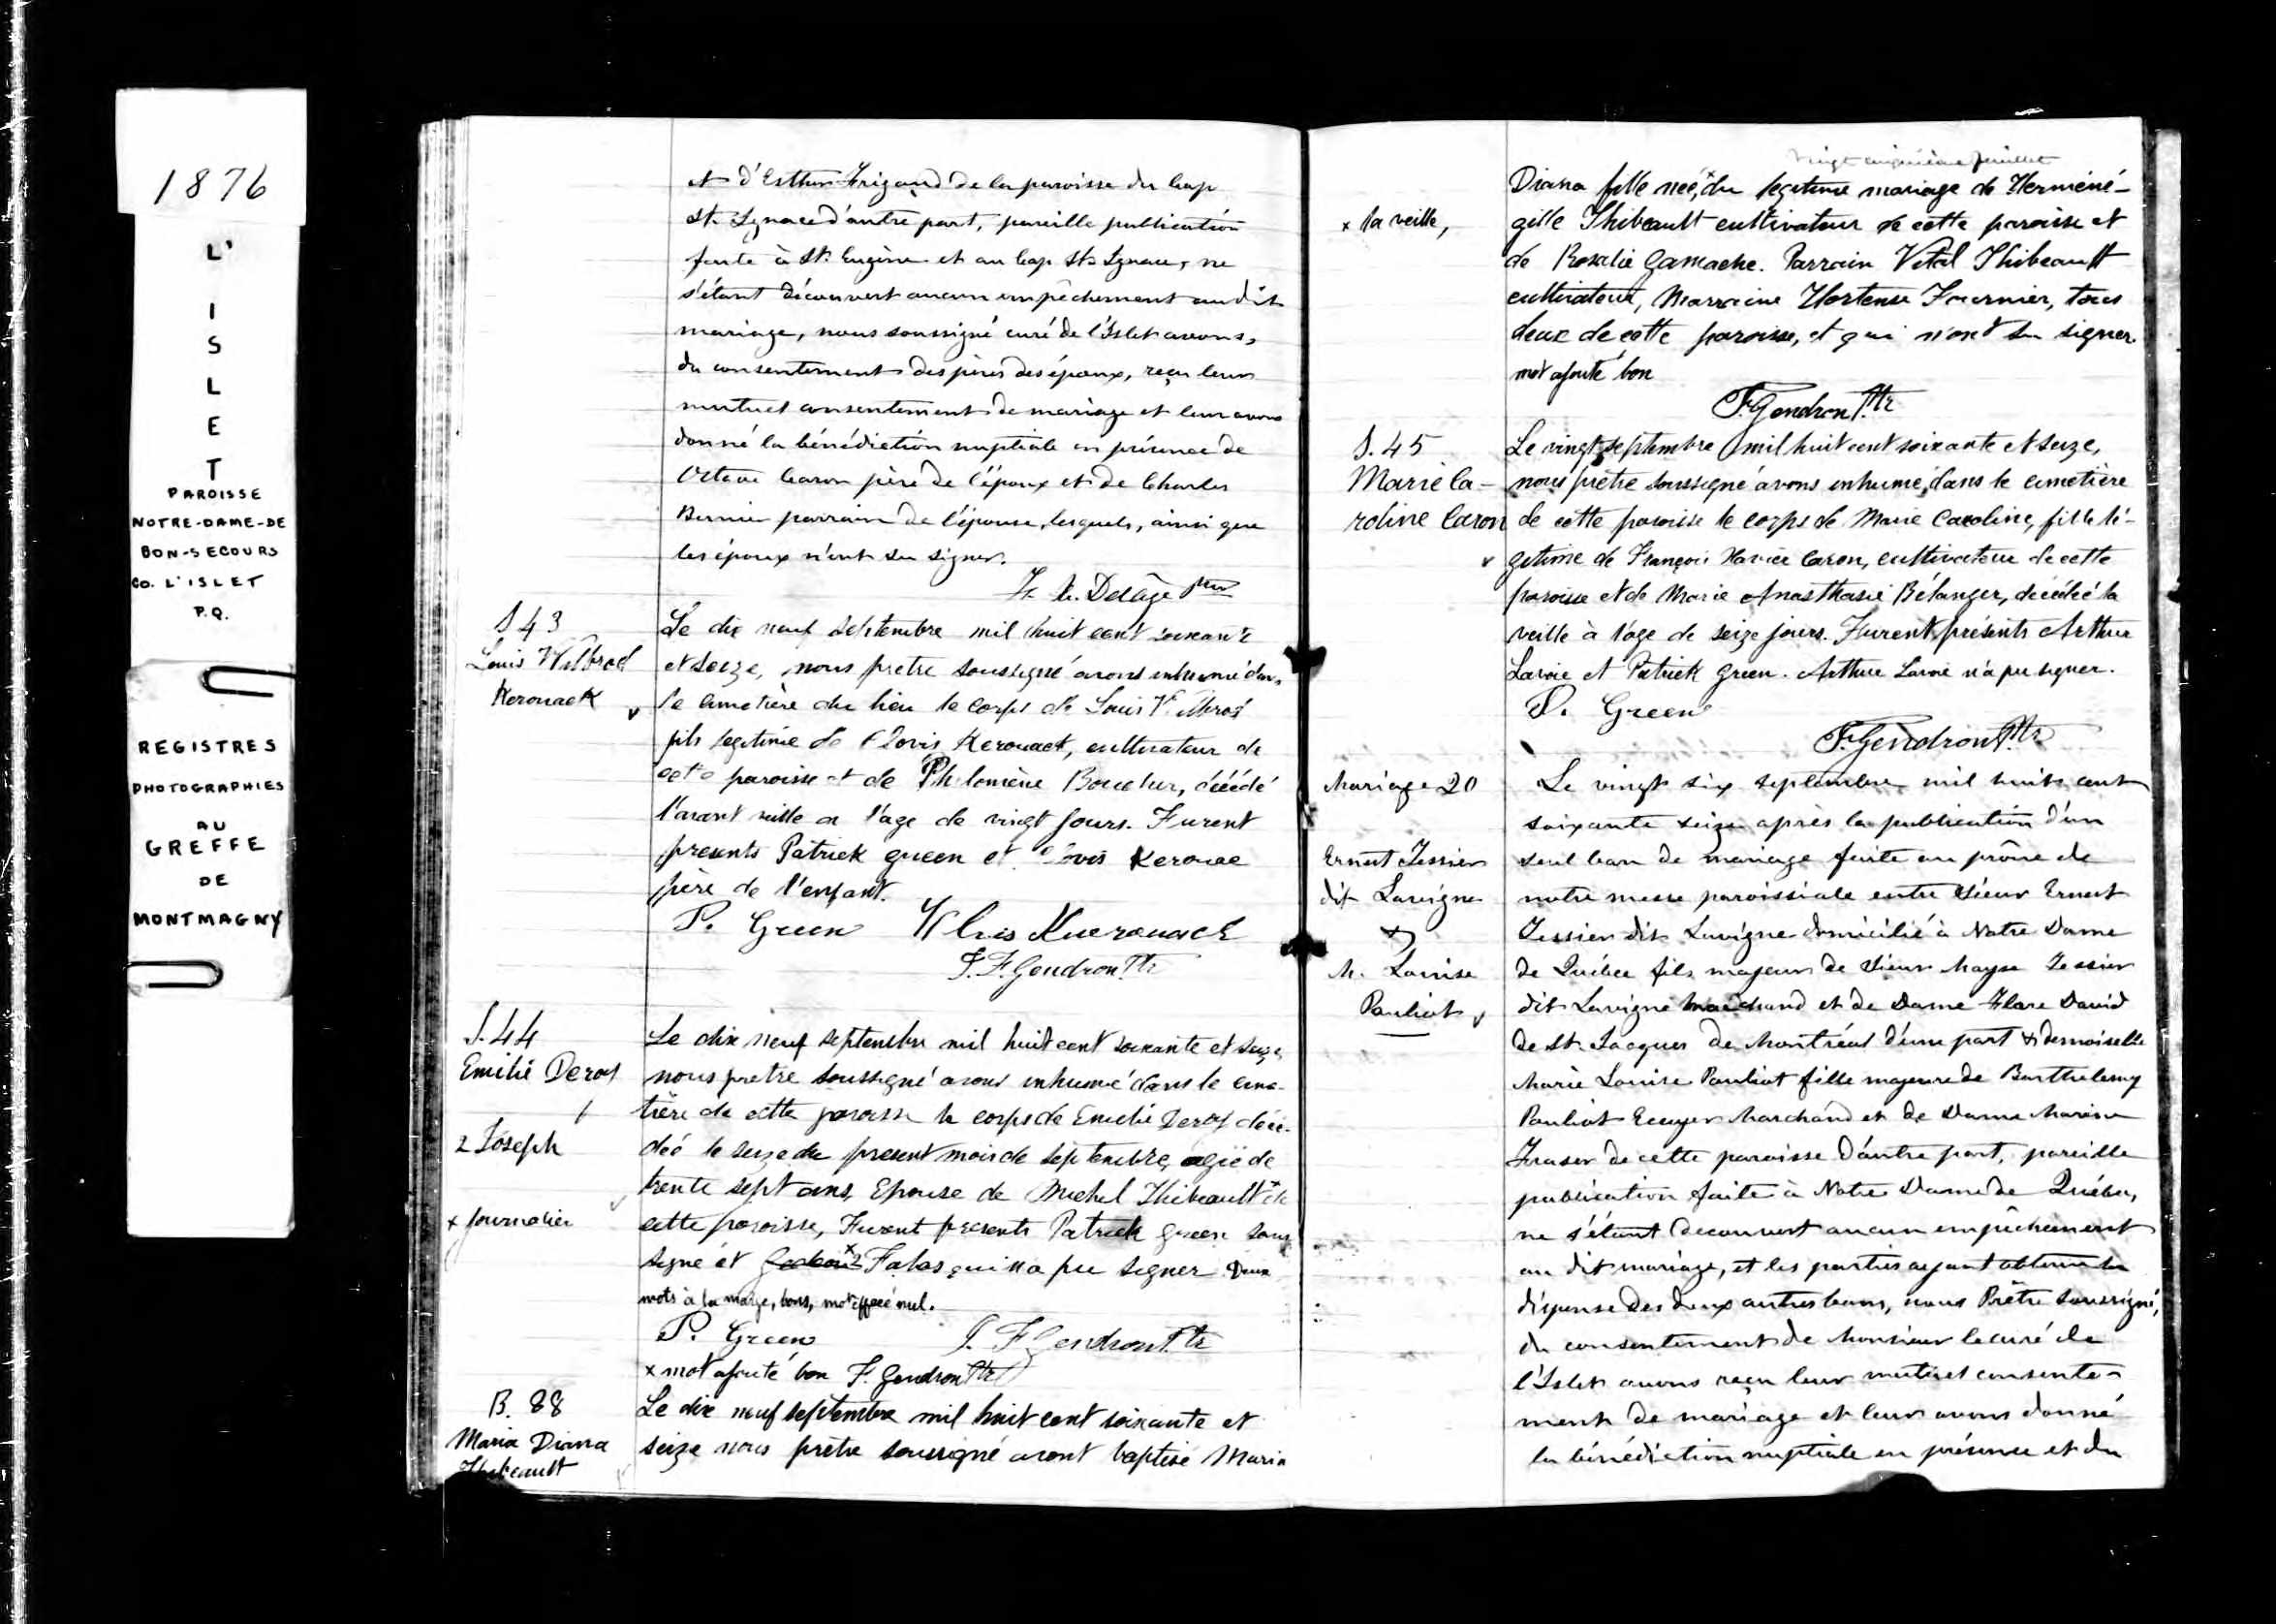 1876
L'
I
S
L
E
T
PAROISSE
NOTRE-DAME-DE
BON-SECOURS
CO. L'ISLET
P.Q.
REGISTRES
PHOTOGRAPHIES
AU
GREFFE
DE
MONTMAGNY
et d'Esther de la paroisse du Cap
St. Ignace d'autre part, pareille publication
faite à St. Eugène et au Cap St. Ignace, ne
s'étant découvert aucun empêchement au dit
mariage, nous soussigné curé de l'Islet avons,
du consentement des pères des époux, reçu leur
mutuel consentement de mariage et leur avons
donné la bénédiction nuptiale en présence de
Octave Caron père de l'époux et de Charles
Bernier parrain de l'épouse, lesquels, ainsi que
les époux n'ont su signer.
Delâge ptre
S 43
Louis Wilbrod
Kerouack
Le dix neuf septembre mil huit cent soixante
et seize, nous prêtre soussigné avons inhumé dans
le cimetière du lieu le corps de Louis
fils legitime de Clovis Kerouack, cultivateur de
cette paroisse et de Philomène Boucher, décédé
l'avant veille a l'age de vingt jours. Furent
presents Patrick green et Clovis Kerouac
père de l'enfant.
P. Green Clovis Kuerouack
J. F. Gendron Ptr
S. 44
Emilie Deroy
2 Joseph
x journalier
Le dix neuf septembre mil huit cent soixante et seize,
nous pretre soussigné avons inhumé dans le cime-
tière de cette paroisse le corps de Emelie Deroy décé-
dée le seize du present mois de septembre, agée de
trente sept ans, Epouse de Michel Thibeault x de
cette paroisse, Furent presents Patrick green sous
signé et x2 Falas qui n'a pu signer Deux
mots à la marge, bons, mot effacé nul.
P. Green J. F. Gendron Ptr
x mot ajouté bon F. Gendron Ptr
B. 88
Maria Diana
Thibeault
Le dix neuf septembre mil huit cent soixante et
seize nous prêtre soussigné avont baptisé Maria
vingt juillet
x la veille,
Diana fille née, x du legitime mariage de Herméné-
gille Thibeault cultivateur de cette paroisse et
de Rosalie Gamache. Parrain Vital Thibeault
cultivateur, Marraine Hortense Fournier, tous
deux de cette paroisse, et qui n'ont su signer.
mot ajouté bon
F. Gendron Ptr
S. 45
Marie Ca-
roline Caron
Le vingt septembre mil huit cent soixante et seize,
nous prêtre soussigné avons inhumé, dans le cimetière
de cette paroisse le corps de Marie Caroline, fille lé-
gitime de François Xavier Caron, cultivateur de cette
paroisse et de Marie Anasthasie Bélanger, décédée la
veille à l'age de seize jours. Furent présents Arthur
Lavoie et Patrick green. Arthur Lavoie n'a pu signer.
P. Green
F. Gendron Ptr
Mariage 20
Ernest Tessier
dit Lavigne
&
M. Louise
Pouliot
Le vingt six septembre mil huit cent
soixante seize après la publication d'un
seul ban de mariage faite au prône de
notre messe paroissiale entre Sieur Ernest
Tessier dit Lavigne domicilié à Notre Dame
de Québec fils majeur de Sieur Moyse Tessier
dit Lavigne marchand et de Dame David
de St. Jacques de Montréal d'une part & demoiselle
Marie Louise Pouliot fille majeure de Barthelemy
Pouliot Ecuyer Marchand et de Dame
Fraser de cette paroisse d'autre part, pareille
publication faite à Notre Dame de Québec,
ne s'étant découvert aucun empêchement
au dit mariage, et les parties ayant obtenu la
dispense des deux autres bans, nous Prêtre Soussigné,
du consentement de Monsieur le curé de
l'Islet avons reçu leur mutuel consente-
ment de mariage et leur avons donné
la bénédiction nuptiale en présence et du